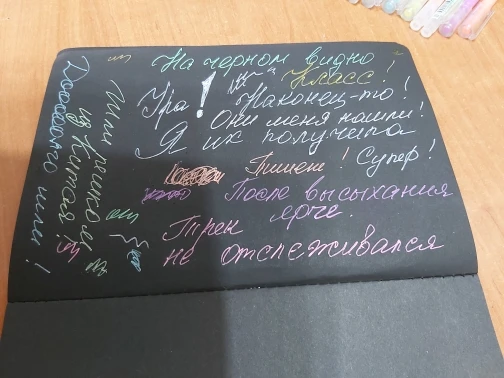 На черном видно!
Класс!
Ура! Наконец-то!
Они меня нашли!
Я их получила
Пишет! Супер!
После высыхания
ярче.
Трек
не отслеживался
Шли пешком
из Китая!
Долго шли!